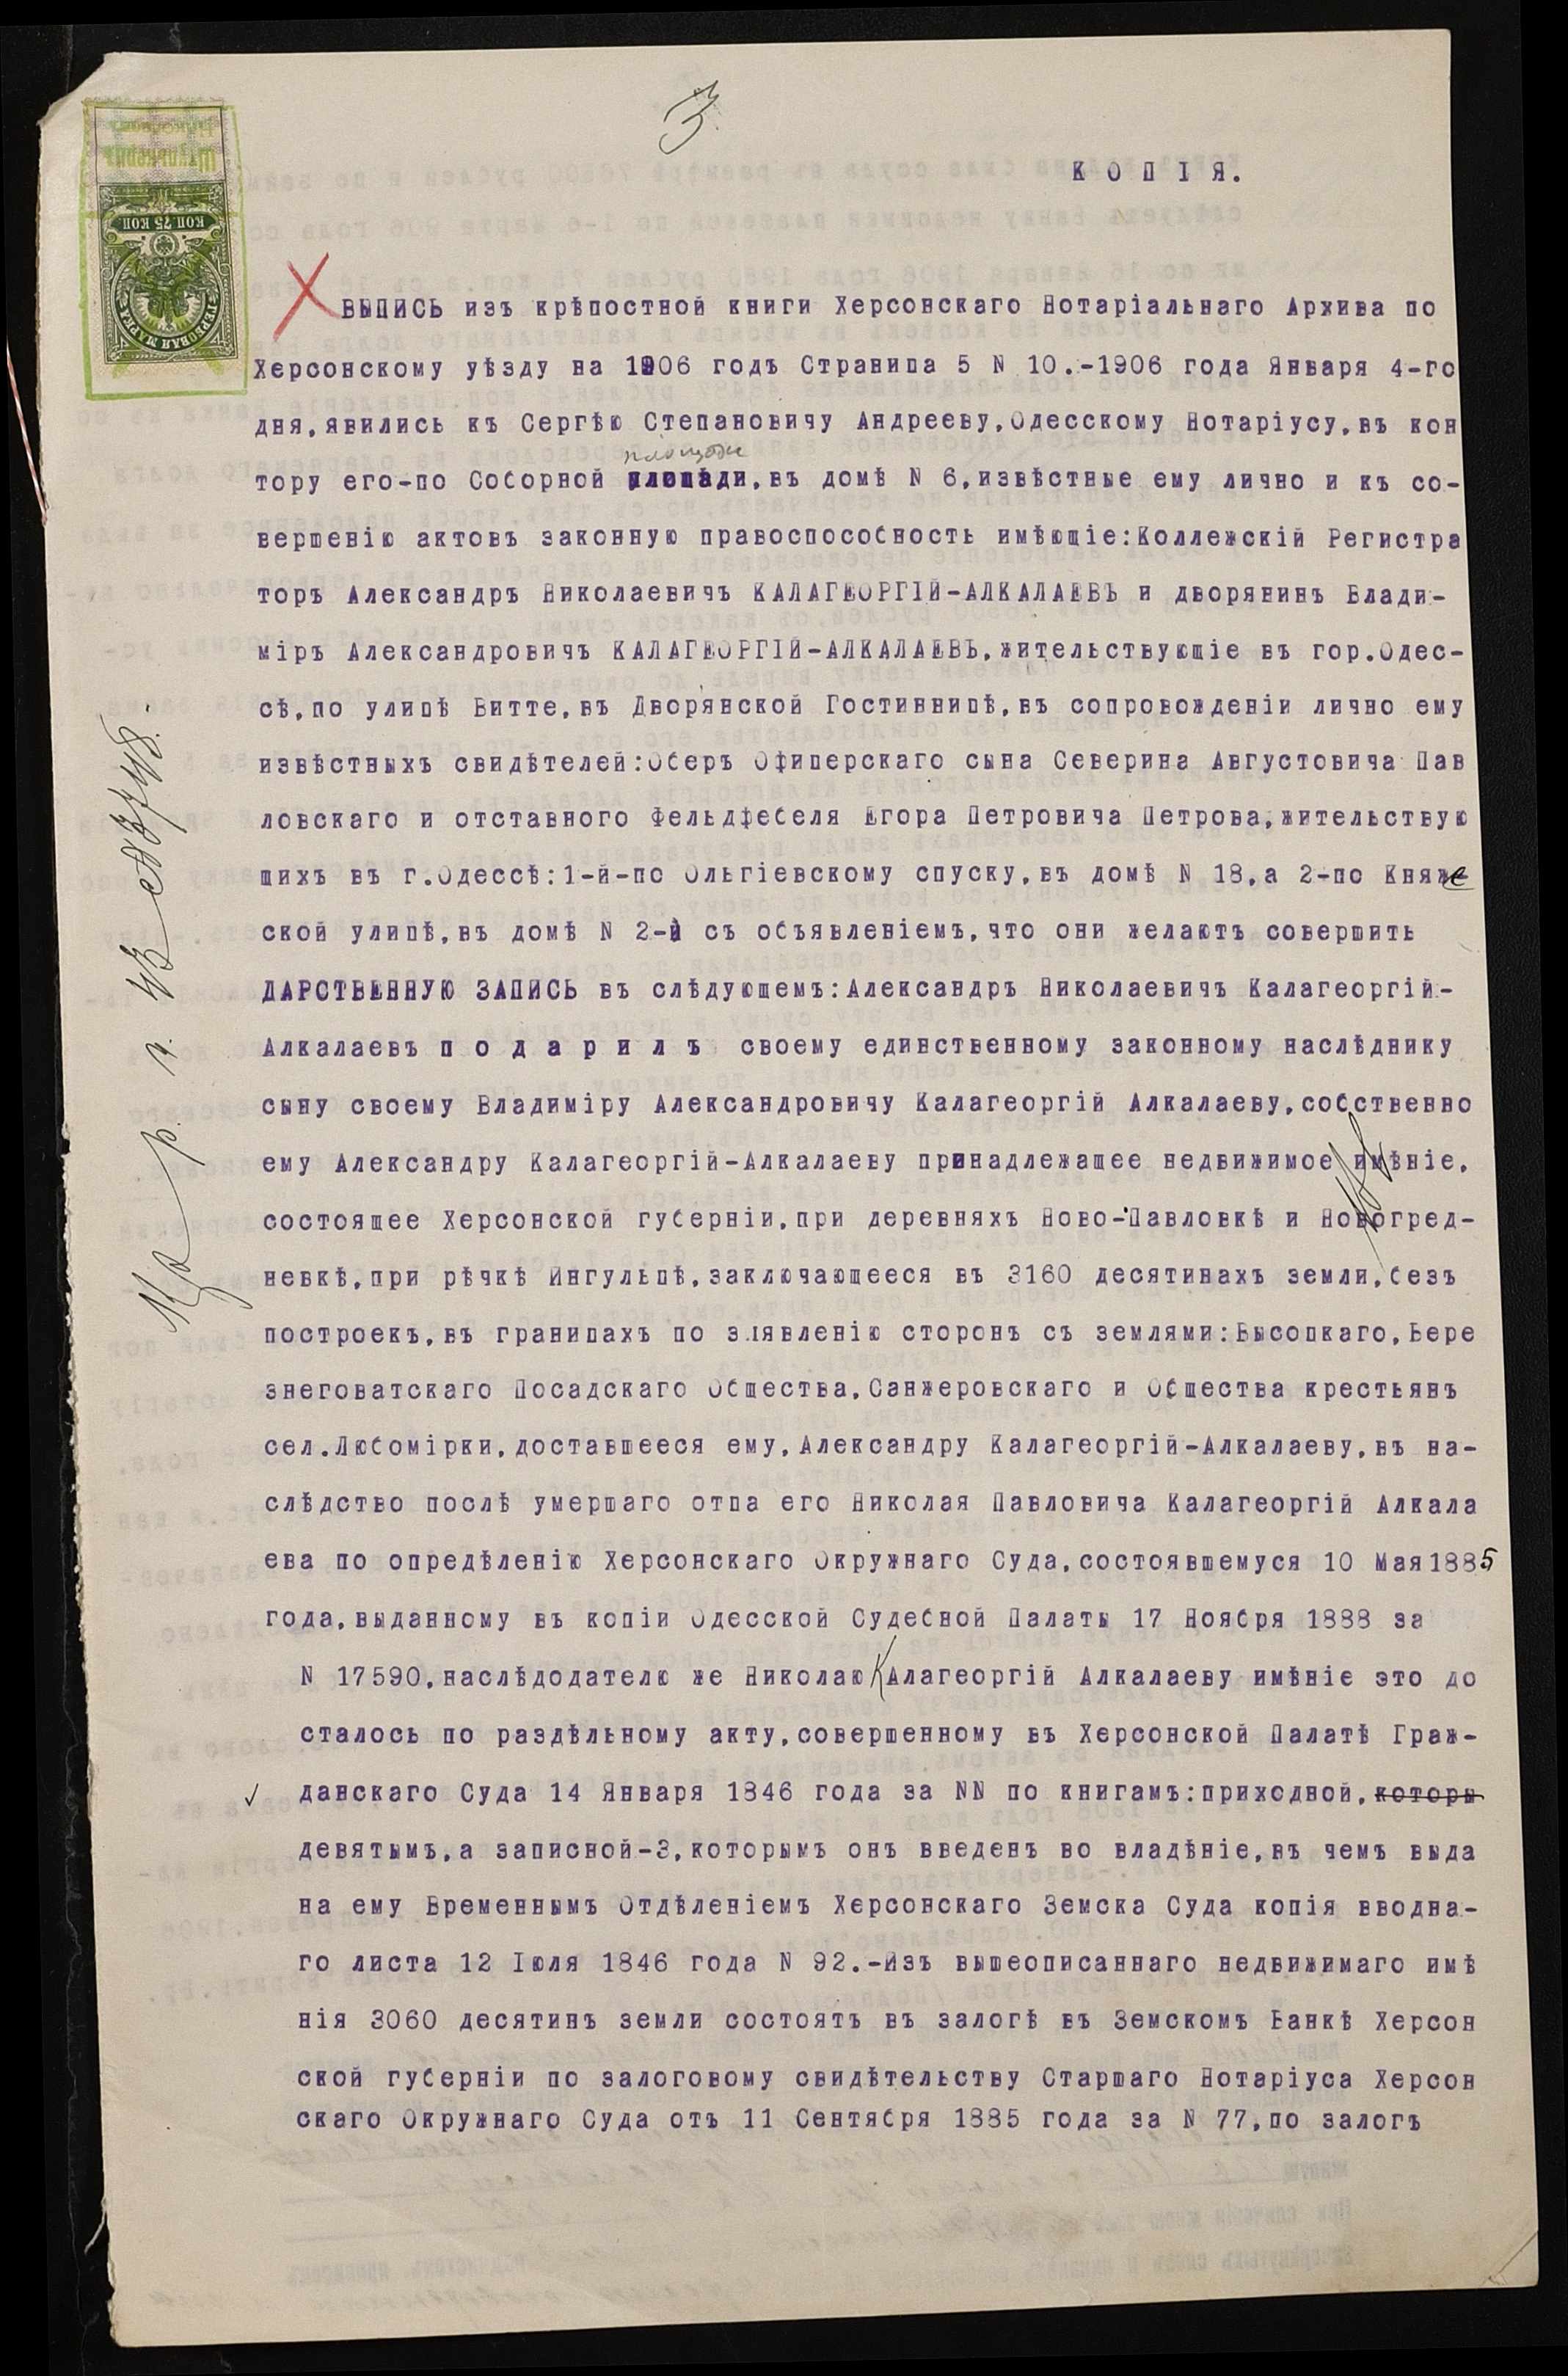 3
КОПІЯ.
КОП 75 КОП
ГЕРБОВАЯ МАРКА
ВЫПИСЬ изъ крѣпостной книги Херсонскаго Нотаріальнаго Архива по
Херсонскому уѣзду на 1906 годъ Страница 5 N 10.-1906 года Января 4-го
дня,явились къ Сергѣю Степановичу Андрееву,Одесскому Нотаріусу,въ кон
площади
тору его-по Соборной площади,въ домѣ N 6,извѣстные ему лично и къ со-
вершенію актовъ законную правоспособность имѣющіе:Коллежскій Регистра
торъ Александръ Николаевичъ КАЛАГЕОРГІЙ-АЛКАЛАЕВЪ и дворянинъ Влади-
міръ Александровичъ КАЛАГЕОРГІЙ-АЛКАЛАЕВЪ,жительствующіе въ гор.Одес-
сѣ,по улицѣ Витте,въ Дворянской Гостинницѣ,въ сопровожденіи лично ему
извѣстныхъ свидѣтелей:Оберъ Офицерскаго сына Северина Августовича Пав
ловскаго и отставного Фельдфебеля Егора Петровича Петрова,жительствую
щихъ въ г.Одессѣ:1-й-по Ольгіевскому спуску,въ домѣ N 18,а 2-по Княже
ской улицѣ,въ домѣ N 2-й съ объявленіемъ,что они желаютъ совершить
ДАРСТВЕННУЮ ЗАПИСЬ въ слѣдующемъ:Александръ Николаевичъ Калагеоргій-
Алкалаевъ п о д а р и л ъ своему единственному законному наслѣднику
сыну своему Владиміру Александровичу Калагеоргій Алкалаеву,собственно
ему Александру Калагеоргій-Алкалаеву принадлежащее недвижимое имѣніе,
состоящее Херсонской губерніи,при деревняхъ Ново-Павловкѣ и Новогред-
невкѣ,при рѣчкѣ Ингульцѣ,заключающееся въ 3160 десятинахъ земли,безъ
построекъ,въ границахъ по заявленію сторонъ съ землями:Высоцкаго,Бере
знеговатскаго Посадскаго Общества,Санжеровскаго и Общества крестьянъ
сел.Любомірки,доставшееся ему,Александру Калагеоргій-Алкалаеву,въ на-
слѣдство послѣ умершаго отца его Николая Павловича Калагеоргій Алкала
ева по опредѣленію Херсонскаго Окружнаго Суда,состоявшемуся 10 Мая 1885
года,выданному въ копіи Одесской Судебной Палаты 17 Ноября 1888 за
N 17590,наслѣдодателю же Николаю Калагеоргій Алкалаеву имѣніе это до
сталось по раздѣльному акту,совершенному въ Херсонской Палатѣ Граж-
данскаго Суда 14 Января 1846 года за NN по книгамъ:приходной,которы
девятымъ,а записной-3,которымъ онъ введенъ во владѣніе,въ чемъ выда
на ему Временнымъ Отдѣленіемъ Херсонскаго Земска Суда копія вводна-
го листа 12 Іюля 1846 года N 92.-Изъ вышеописаннаго недвижимаго имѣ
нія 3060 десятинъ земли состоятъ въ залогѣ въ Земскомъ Банкѣ Херсон
ской губерніи по залоговому свидѣтельству Старшаго Нотаріуса Херсон
скаго Окружнаго Суда отъ 11 Сентября 1885 года за N 77,по залогъ